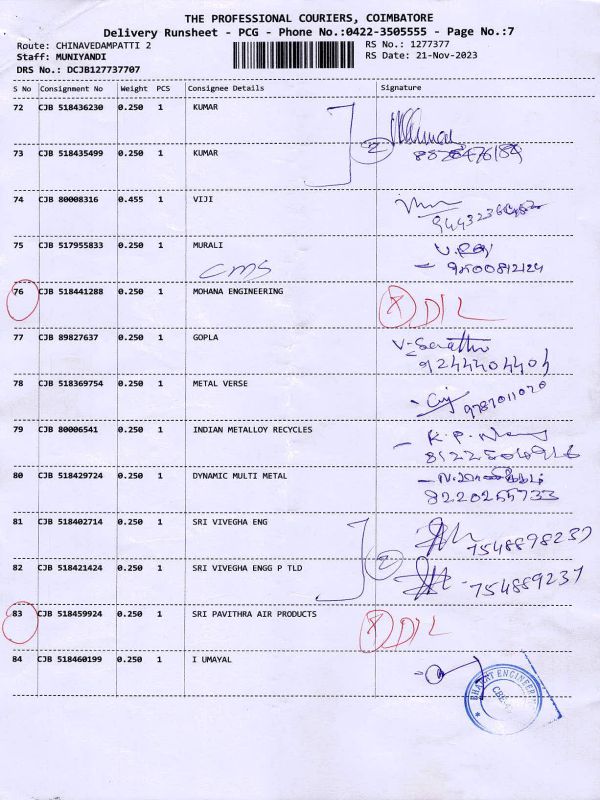 THE PROFESSIONAL COURIERS, COIMBATORE
Delivery Runsheet - PCG - Phone No.:0422-3505555 - Page No.:7
Route: CHINAVEDAMPATTI 2
RS No.: 1277377
Staff: MUNIYANDI
RS Date: 21-Nov-2023
DRS No.: DCJB127737707
S No Consignment No Weight PCS Consignee Details Signature
72 CJB 518436230 0.250 1 KUMAR
2
73 CJB 518435499 0.250 1 KUMAR
74 CJB 80008316 0.455 1 VIJI
75 CJB 517955833 0.250 1 MURALI
cms
9500812124
76 CJB 518441288 0.250 1 MOHANA ENGINEERING
X D/L
77 CJB 89827637 0.250 1 GOPLA
9244404404
78 CJB 518369754 0.250 1 METAL VERSE
9787011020
79 CJB 80006541 0.250 1 INDIAN METALLOY RECYCLES
80 CJB 518429724 0.250 1 DYNAMIC MULTI METAL
8220255733
81 CJB 518402714 0.250 1 SRI VIVEGHA ENG
7548898237
2
82 CJB 518421424 0.250 1 SRI VIVEGHA ENGG P TLD
754889237
83 CJB 518459924 0.250 1 SRI PAVITHRA AIR PRODUCTS
X D/L
84 CJB 518460199 0.250 1 I UMAYAL